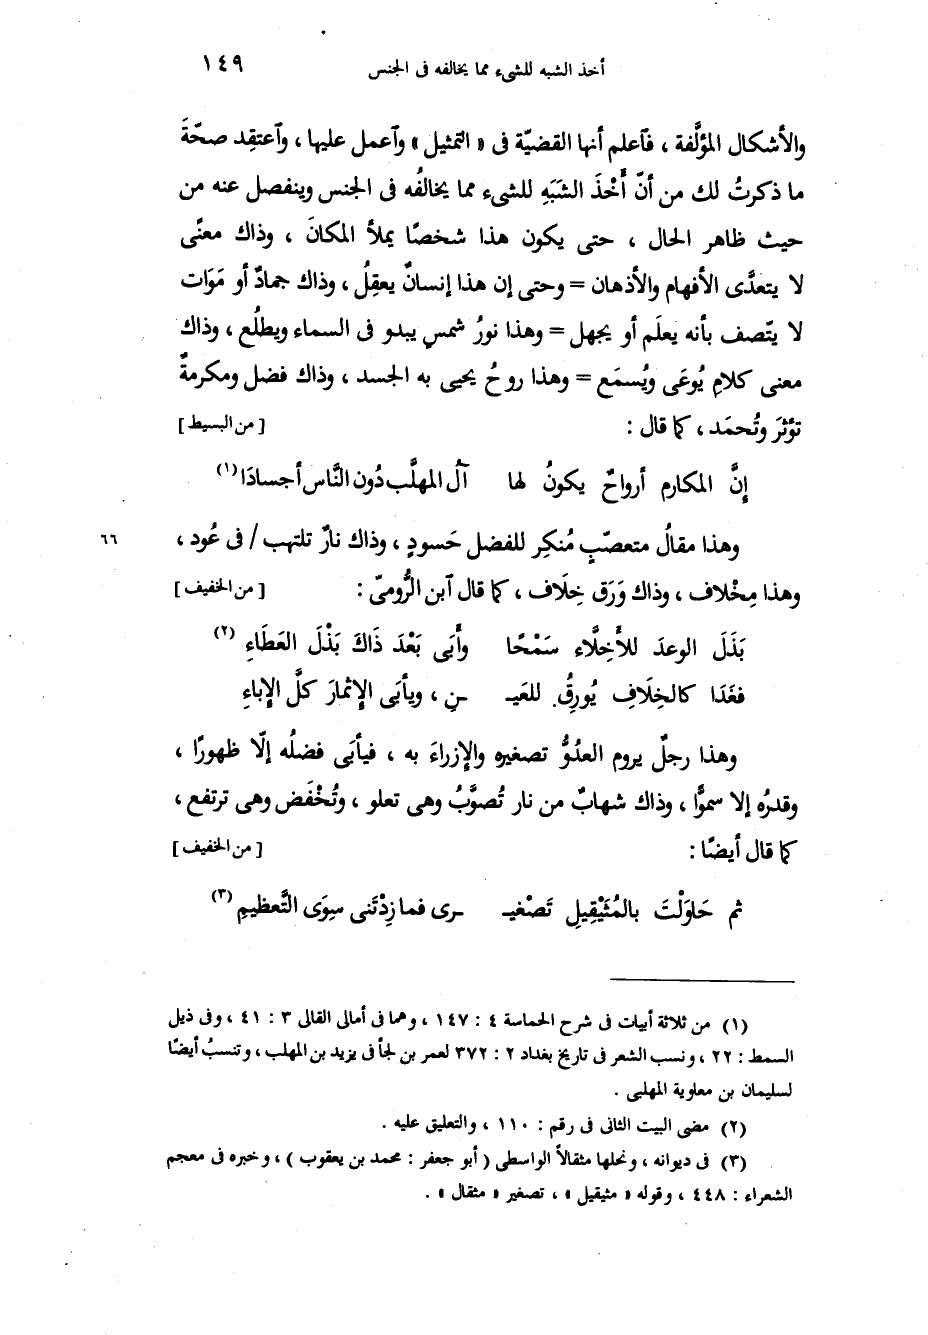 أخذ الشبه للشىء مما يخالفه فى الجنس ١٤٩
والأشكال المؤلَّفة ، فآعلم أنها القضيّة فى « التمثيل » وآعمل عليها ، وآعتقِد صحّةَ
ما ذكرتُ لك من أنّ أَخْذَ الشَبَهِ للشىء مما يخالفُه فى الجنس وينفصل عنه من
حيث ظاهر الحال ، حتى يكون هذا شخصًا يملأ المكانَ ، وذاك معنًى
لا يتعدَّى الأفهام والأذهان = وحتى إن هذا إنسانٌ يعقِلُ ، وذاك جمادٌ أو مَوَات
لا يتّصف بأنه يعلَم أو يجهل = وهذا نورُ شمسٍ يبدو فى السماء ويطلُع ، وذاك
معنى كلامٍ يُوعَى ويُسمَع = وهذا روحُ يحيى به الجسد ، وذاك فضل ومكرمةٌ
تؤثرَ وتُحمَد ، كما قال : [ من البسيط ]
إنَّ المكارم أرواحٌ يكونُ لها آلُ المهلَّب دُون النَّاس أجسادَا (١)
وهذا مقالُ متعصّبٍ مُنكِر للفضل حَسودٍ ، وذاك نارٌ تلتهب / فى عُود ، ٦٦
وهذا مِخْلاف ، وذاك وَرَق خِلَاف ، كما قال آبن الرُّومىّ : [ من الخفيف ]
بَذَلَ الوعدَ للأَخِلَّاء سَمْحًا وأَبَى بَعْدَ ذَاكَ بَذْلَ العَطَاءِ (٢)
فغَدَا كالخِلَافِ يُورِقُ للعَيـ ـنِ ، ويأبَى الإثمارَ كلَّ الإباءِ
وهذا رجلٌ يروم العدُوُّ تصغيره والإزراءَ به ، فيأبَى فضلُه إلّا ظهورًا ،
وقدرُه إلا سموًّا ، وذاك شهابٌ من نار تُصوَّبُ وهى تعلو ، وتُخْفَض وهى ترتفع ،
كما قال أيضًا : [ من الخفيف ]
ثم حَاوَلْتَ بالمُثَيْقِيلِ تَصْغيـ ـرى فما زِدْتَنى سِوَى التَّعظيمِ (٣)
(١) من ثلاثة أبيات فى شرح الحماسة ٤ : ١٤٧ ، وهما فى أمالى القالى ٣ : ٤١ ، وفى ذيل
السمط : ٢٢ ، ونسب الشعر فى تاريخ بغداد ٢ : ٣٧٢ لعمر بن لجأ فى يزيد بن المهلب ، وتنسبُ أيضًا
لسليمان بن معاوية المهلبى .
(٢) مضى البيت الثانى فى رقم : ١١٠ ، والتعليق عليه .
(٣) فى ديوانه ، ونحلها مثقالاً الواسطى ( أبو جعفر : محمد بن يعقوب ) ، وخبره فى معجم
الشعراء : ٤٤٨ ، وقوله « مثيقيل » ، تصغير « مثقال » .